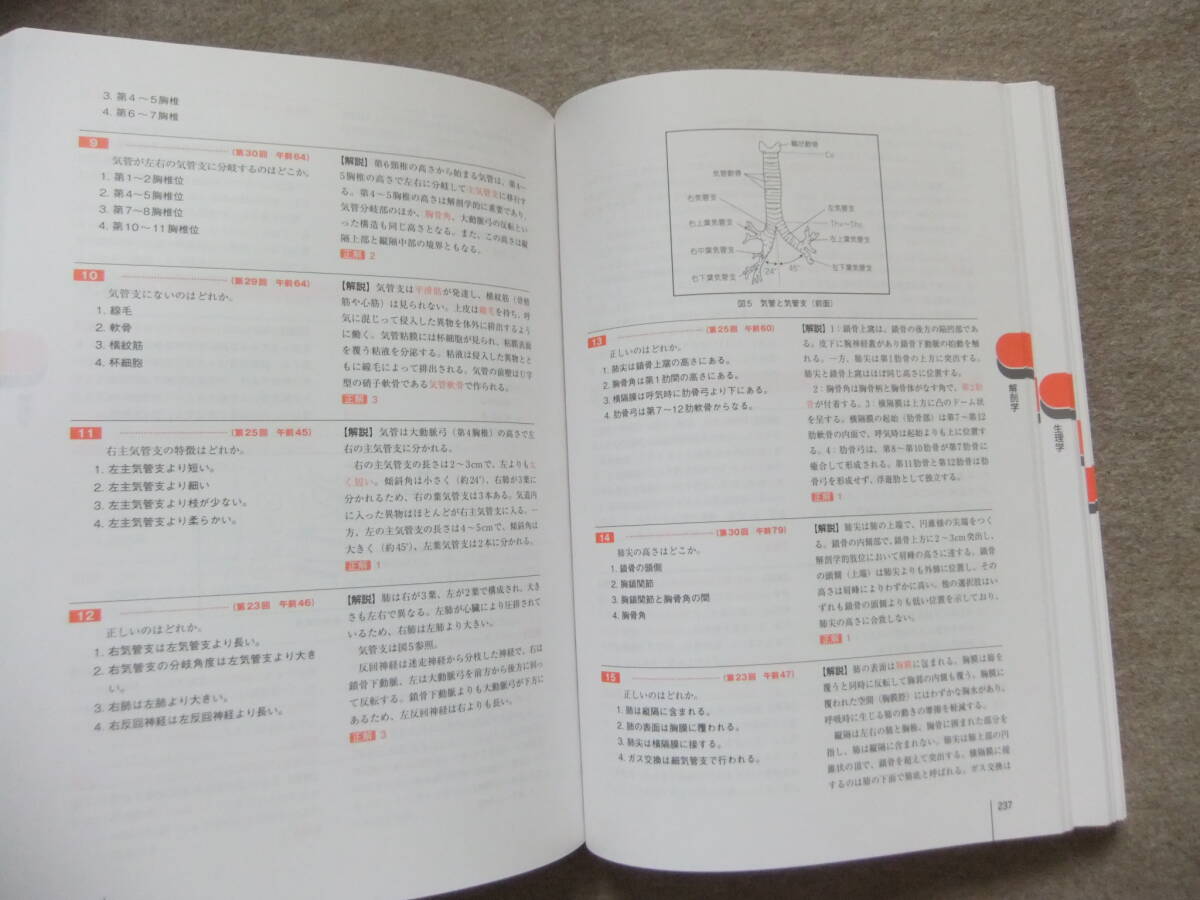 3. 第4〜5胸椎
4. 第6〜7胸椎
9
(第30回 午前64)
気管が左右の気管支に分岐するのはどこか。
1. 第1〜2胸椎位
2. 第4〜5胸椎位
3. 第7〜8胸椎位
4. 第10〜11胸椎位
【解説】第6頸椎の高さから始まる気管は、第4〜
5胸椎の高さで左右に分岐して主気管支に移行す
る。第4〜5胸椎の高さは解剖学的に重要であり、
気管分岐部のほか、胸骨角、大動脈弓の反転とい
った構造も同じ高さとなる。また、この高さは縦
隔上部と縦隔中部の境界ともなる。
正解 2
10
(第29回 午前64)
気管支にないのはどれか。
1. 線毛
2. 軟骨
3. 横紋筋
4. 杯細胞
【解説】気管支は平滑筋が発達し、横紋筋(骨格
筋や心筋)は見られない。上皮は線毛を持ち、呼
気に混じって侵入した異物を体外に排出するよう
に働く。気管粘膜には杯細胞が見られ、粘膜表面
を覆う粘液を分泌する。粘液は侵入した異物とと
もに線毛によって排出される。気管の前壁はU字
型の硝子軟骨である気管軟骨で作られる。
正解 3
11
(第25回 午前45)
右主気管支の特徴はどれか。
1. 左主気管支より短い。
2. 左主気管支より細い
3. 左主気管支より枝が少ない。
4. 左主気管支より柔らかい。
【解説】気管は大動脈弓(第4胸椎)の高さで左
右の主気管支に分かれる。
右の主気管支の長さは2〜3cmで、左よりも太
く短い。傾斜角は小さく(約24°)、右肺が3葉に
分かれるため、右の葉気管支は3本ある。気道内
に入った異物はほとんどが右主気管支に入る。一
方、左の主気管支の長さは4〜5cmで、傾斜角は
大きく(約45°)、左葉気管支は2本に分かれる。
正解 1
12
(第23回 午前46)
正しいのはどれか。
1. 右気管支は左気管支より長い。
2. 右気管支の分岐角度は左気管支より大き
い。
3. 右肺は左肺より大きい。
4. 右反回神経は左反回神経より長い。
【解説】肺は右が3葉、左が2葉で構成され、大き
さも左右で異なる。左肺が心臓により圧排されて
いるため、右肺は左肺より大きい。
気管支は図5参照。
反回神経は迷走神経から分枝した神経で、右は
鎖骨下動脈、左は大動脈弓を前方から後方に回っ
て反転する。鎖骨下動脈よりも大動脈弓が下方に
あるため、左反回神経は右よりも長い。
正解 3
輪状軟骨
C6
気管軟骨
右気管支
左気管支
Th4〜Th5
右上葉気管支
左上葉気管支
右中葉気管支
左下葉気管支
右下葉気管支
24°
45°
図5 気管と気管支(前面)
13
(第25回 午前60)
正しいのはどれか。
1. 肺尖は鎖骨上窩の高さにある。
2. 胸骨角は第1肋間の高さにある。
3. 横隔膜は呼気時に肋骨弓より下にある。
4. 肋骨弓は第7〜12肋軟骨からなる。
【解説】1:鎖骨上窩は、鎖骨の後方の陥凹部であ
る。皮下に腕神経叢があり鎖骨下動脈の拍動を触
れる。一方、肺尖は第1肋骨の上方に突出する。
肺尖と鎖骨上窩はほぼ同じ高さに位置する。
2:胸骨角は胸骨柄と胸骨体がなす角で、第2肋
骨が付着する。3:横隔膜は上方に凸のドーム状
を呈する。横隔膜の起始(肋骨部)は第7〜第12
肋軟骨の内面で、呼気時は起始よりも上に位置す
る。4:肋骨弓は、第8〜第10肋骨が第7肋骨に
癒合して形成される。第11肋骨と第12肋骨は肋
骨弓を形成せず、浮遊肋として独立する。
正解 1
14
(第30回 午前79)
肺尖の高さはどこか。
1. 鎖骨の頭側
2. 胸鎖関節
3. 胸鎖関節と胸骨角の間
4. 胸骨角
【解説】肺尖は肺の上端で、円錐様の尖端をつく
る。鎖骨の内側部で、鎖骨上方に2〜3cm突出し、
解剖学的肢位において肩峰の高さに達する。鎖骨
の頭側(上端)は肺尖よりも外側に位置し、その
高さは肩峰によりわずかに高い。他の選択肢はい
ずれも鎖骨の頭側よりも低い位置を示しており、
肺尖の高さに合致しない。
正解 1
15
(第23回 午前47)
正しいのはどれか。
1. 肺は縦隔に含まれる。
2. 肺の表面は胸膜に覆われる。
3. 肺尖は横隔膜に接する。
4. ガス交換は細気管支で行われる。
【解説】肺の表面は胸膜に包まれる。胸膜は肺を
覆うと同時に反転して胸郭の内側も覆う。胸膜に
覆われた空間(胸膜腔)にはわずかな胸水があり、
呼吸時に生じる肺の動きの摩擦を軽減する。
縦隔は左右の肺と胸椎、胸骨に囲まれた部分を
指し、肺は縦隔に含まれない。肺尖は肺上部の円
錐状の頂で、鎖骨を超えて突出する。横隔膜に接
するのは肺の下面で肺底と呼ばれる。ガス交換は
解剖学
生理学
237